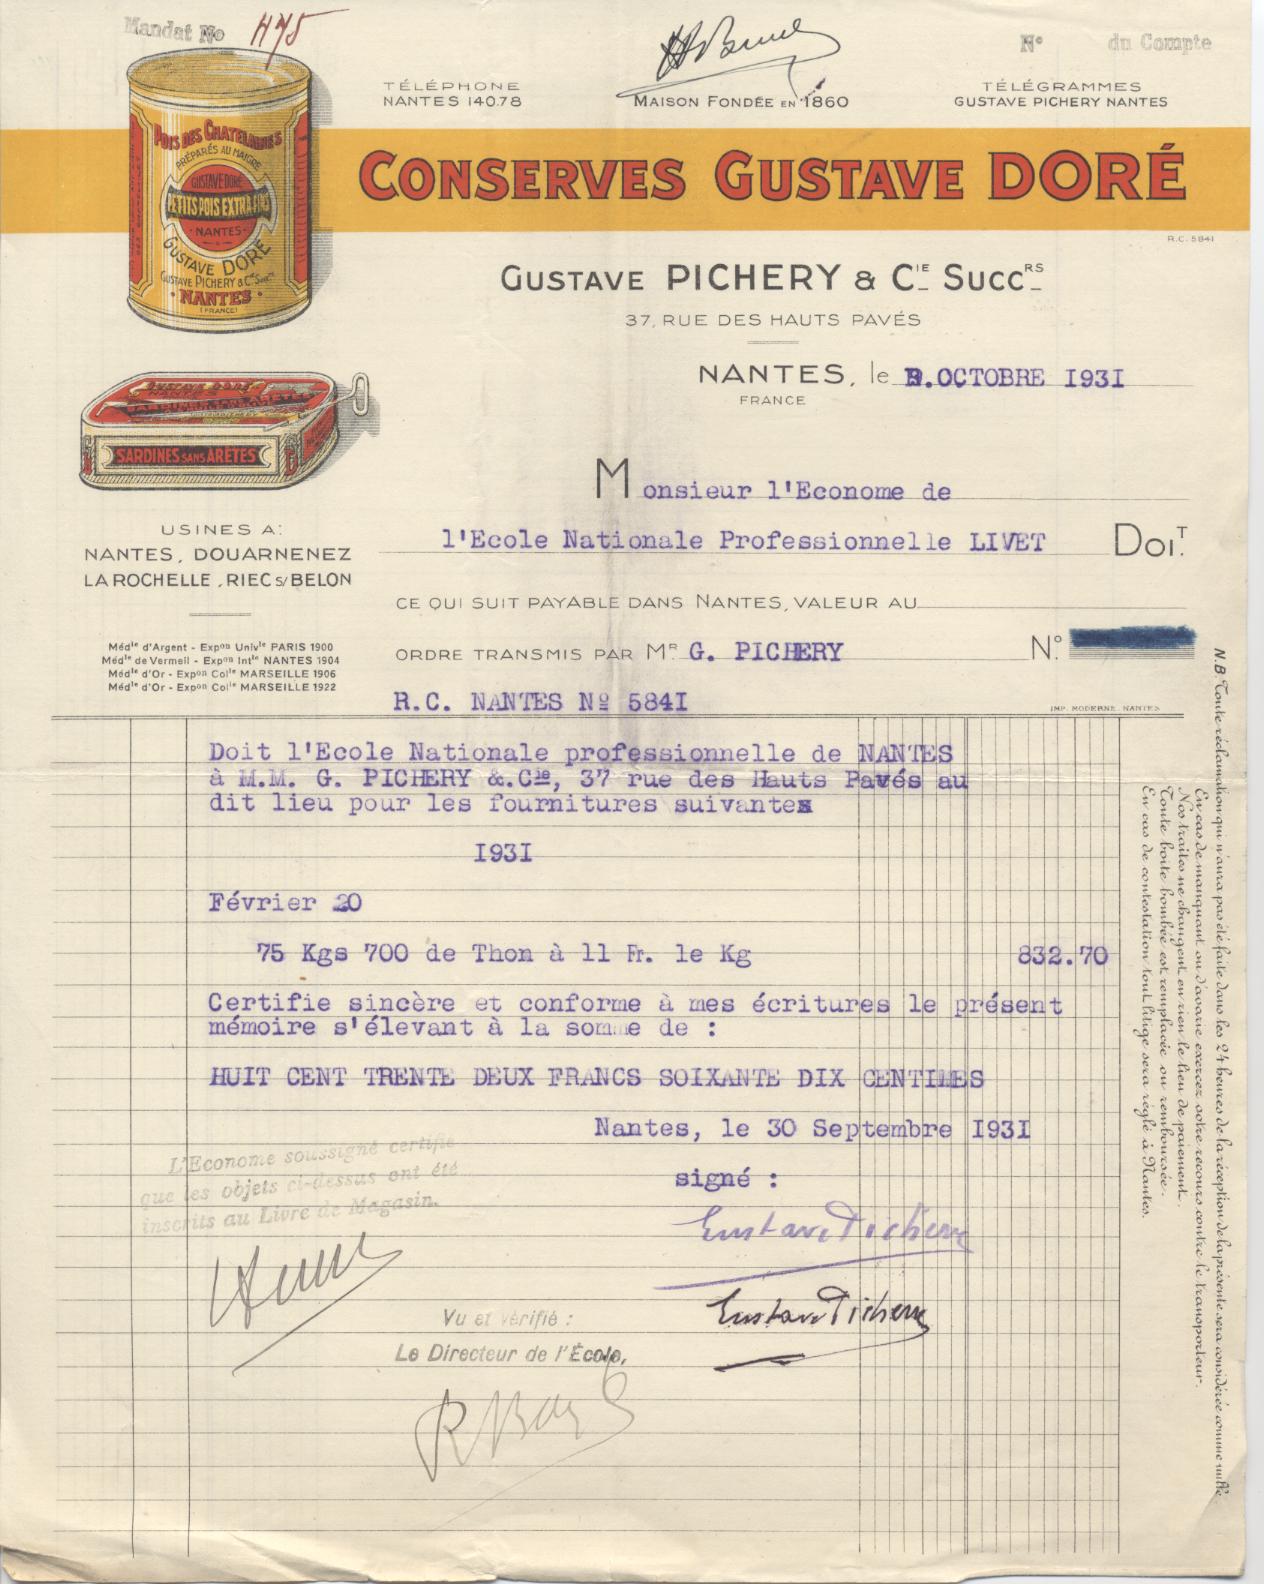 Mandat No 475
No du Compte
TÉLÉPHONE
NANTES 140.78
MAISON FONDÉE EN 1860
TÉLÉGRAMMES
GUSTAVE PICHERY NANTES
POIS DES CHATELAINES
PRÉPARÉS AU MAIGRE
GUSTAVE DORÉ
PETITS POIS EXTRA-FINS
NANTES
GUSTAVE DORÉ
GUSTAVE PICHERY & Cie Succrs
NANTES
(FRANCE)
CONSERVES GUSTAVE DORÉ
R.C. 5841
GUSTAVE PICHERY & CIE SUCCRS
37, RUE DES HAUTS PAVÉS
NANTES, le OCTOBRE 1931
FRANCE
GUSTAVE DORÉ
NANTES
SARDINES SANS ARÊTES
G
USINES A:
NANTES, DOUARNENEZ
LA ROCHELLE, RIEC S/BELON
Monsieur l'Econome de
l'Ecole Nationale Professionnelle LIVET DOIT.
CE QUI SUIT PAYABLE DANS NANTES, VALEUR AU
Médle d'Argent - Expon Univle PARIS 1900
Médle de Vermeil - Expon Intle NANTES 1904
Médle d'Or - Expon Colle MARSEILLE 1906
Médle d'Or - Expon Colle MARSEILLE 1922
ORDRE TRANSMIS PAR MR G. PICHERY No.
R.C. NANTES No 5841
IMP. MODERNE. NANTES
Doit l'Ecole Nationale professionnelle de NANTES
à M.M. G. PICHERY &.Cie, 37 rue des Hauts Pavés au
dit lieu pour les fournitures suivantes
1931
Février 20
75 Kgs 700 de Thon à 11 Fr. le Kg 832.70
Certifie sincère et conforme à mes écritures le présent
mémoire s'élevant à la somme de :
HUIT CENT TRENTE DEUX FRANCS SOIXANTE DIX CENTIMES
Nantes, le 30 Septembre 1931
signé :
Gustave Pichery
Gustave Pichery
L'Econome soussigné certifie
que les objets ci-dessus ont été
inscrits au Livre de Magasin.
Vu et vérifié :
Le Directeur de l'École,
N.B. Toute réclamation qui n'aura pas été faite dans les 24 heures de la réception de la présente sera considérée comme nulle
En cas de manquant ou d'avarie exercez votre recours contre le transporteur.
Nos traites ne changent en rien le lieu de paiement.
Toute boite bombée est remplacée ou remboursée.
En cas de contestation tout litige sera réglé à Nantes.